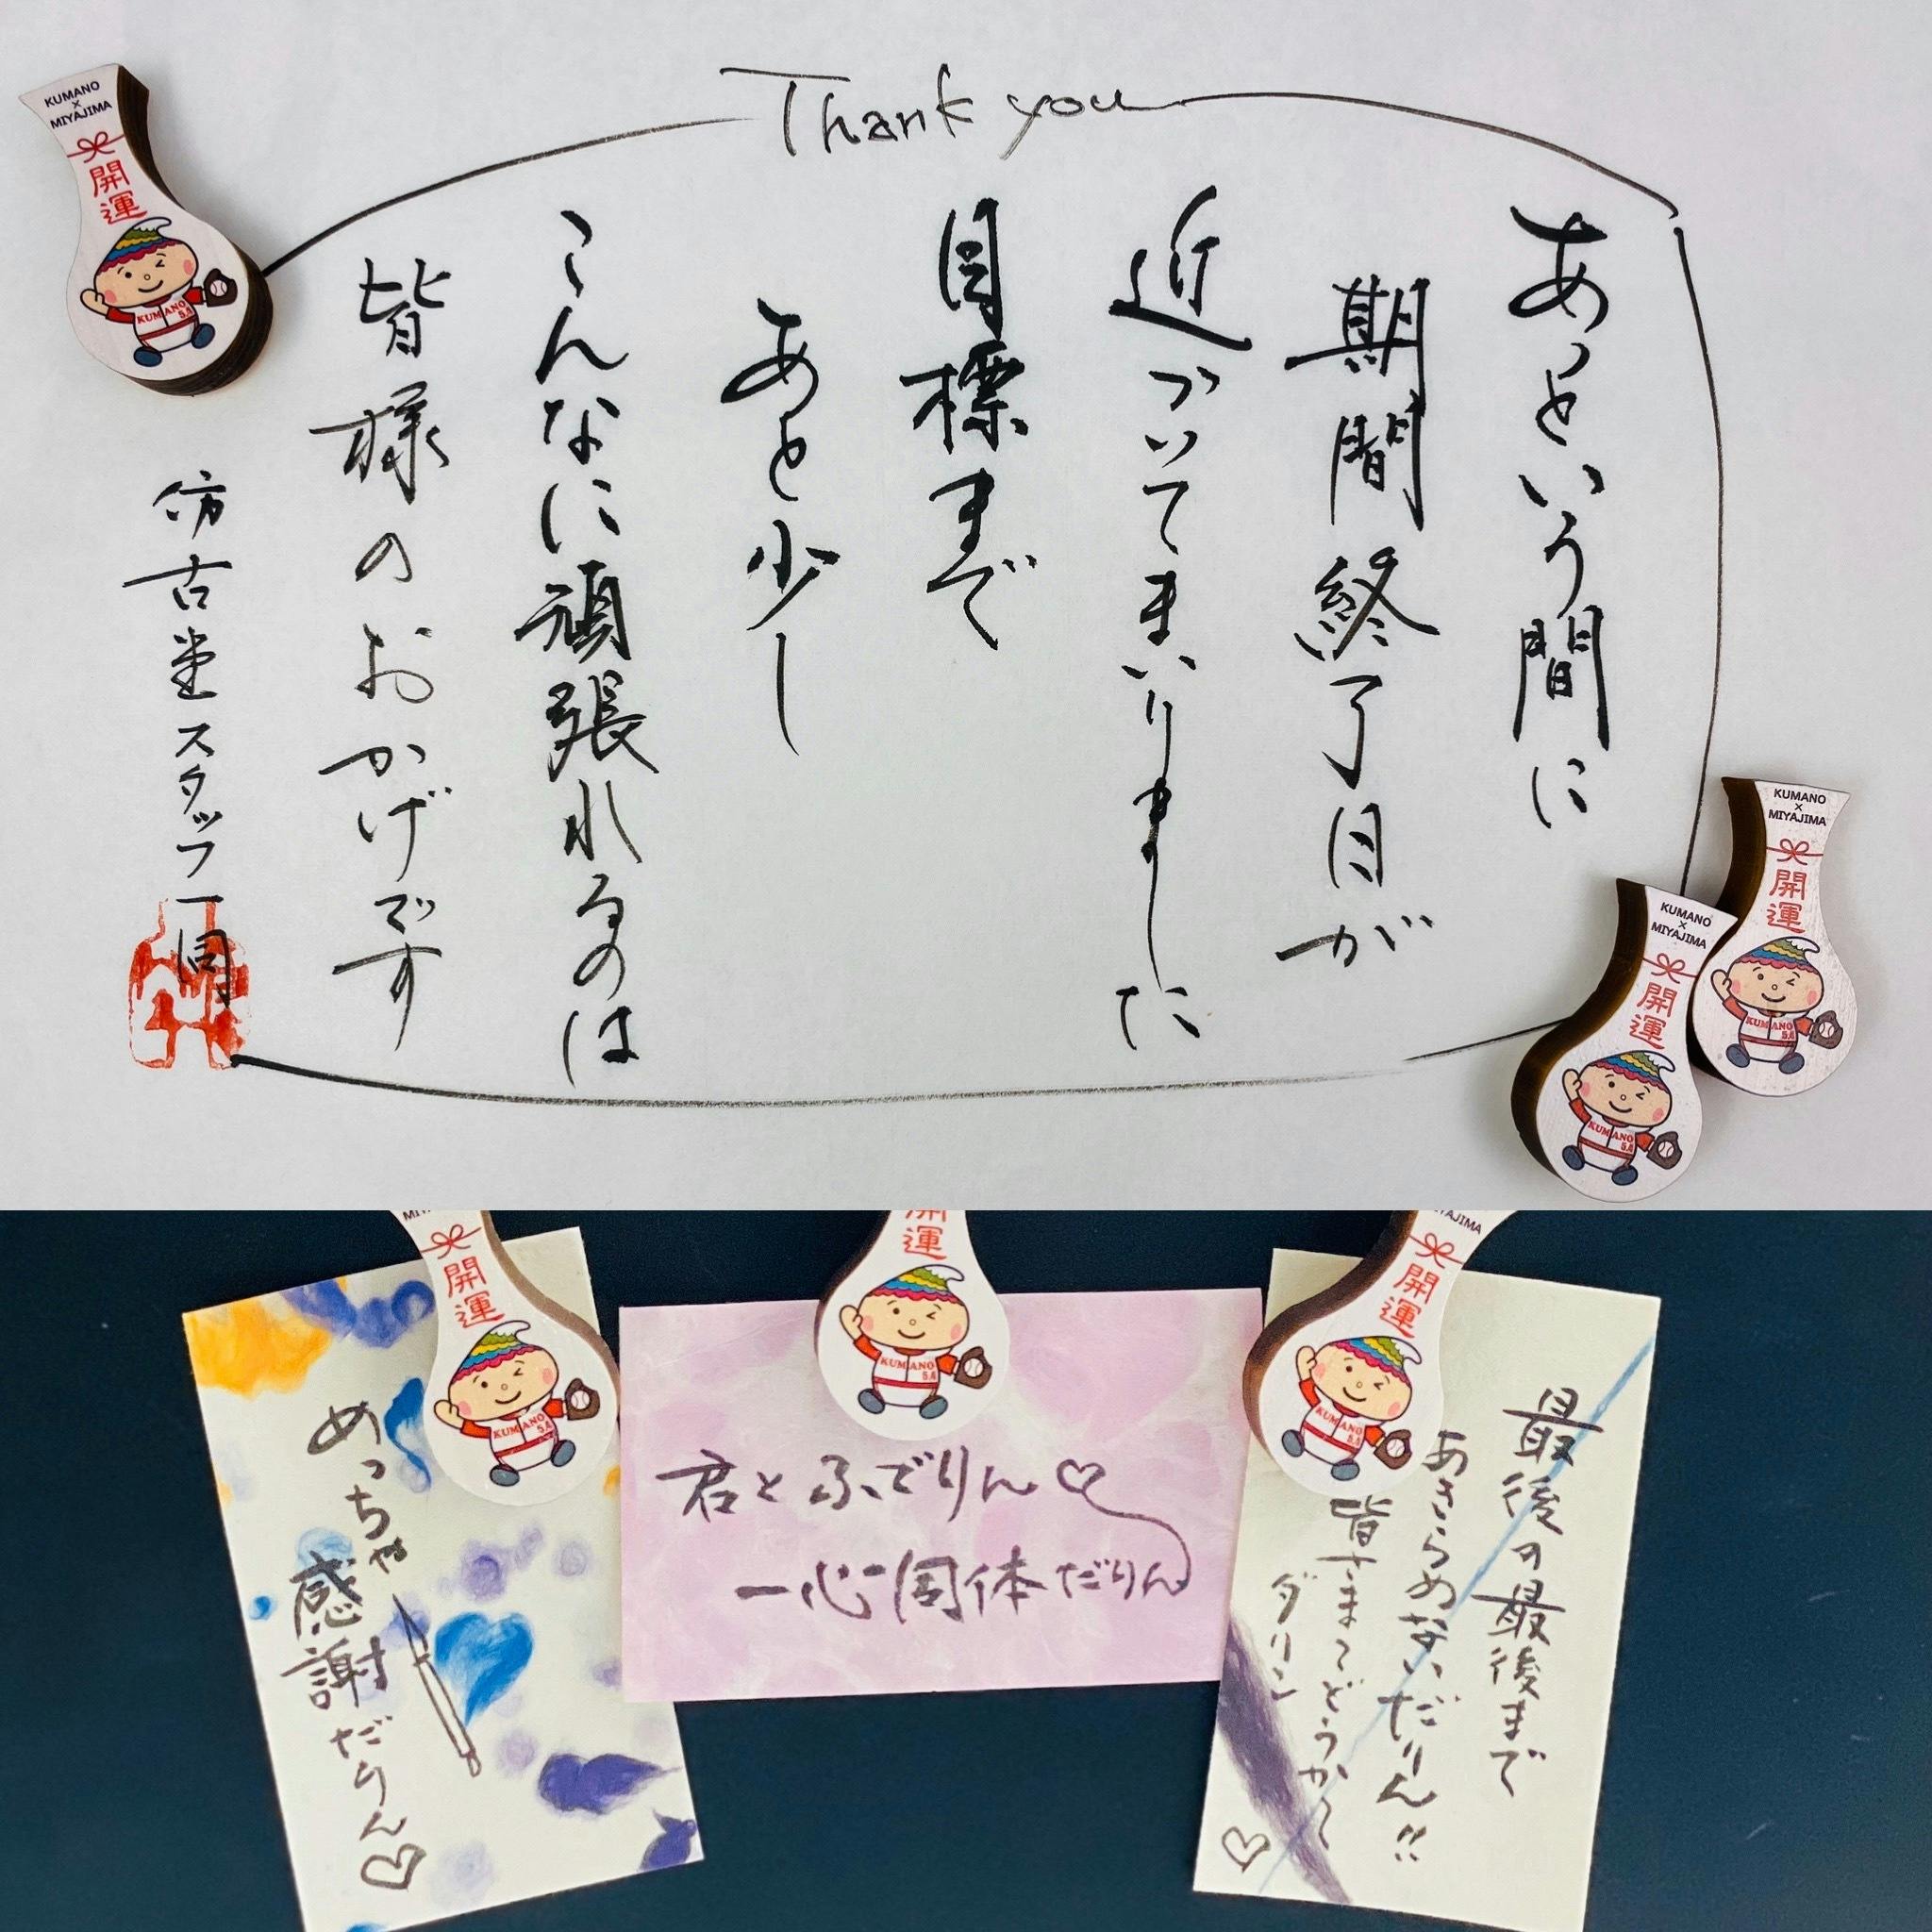 Thank you
あっという間に
期間終了日が
近づいてまいりました
目標まで
あと少し
こんなに頑張れるのは
皆様のおかげです
仿古堂スタッフ一同
KUMANO
×
MIYAJIMA
開運
KUMANO
5.6
KUMANO
×
MIYAJIMA
開運
KUMANO
5.6
KUMANO
×
MIYAJIMA
開運
KUMANO
5.6
開運
KUMANO
5.6
めっちゃ
感謝だりん♡
開運
KUMANO
5.6
君とふでりん♡
一心同体だりん
JIMA
開運
KUMANO
5.6
最後の最後まで
あきらめないだりん!!
皆さまてどうか
ダリン
♡